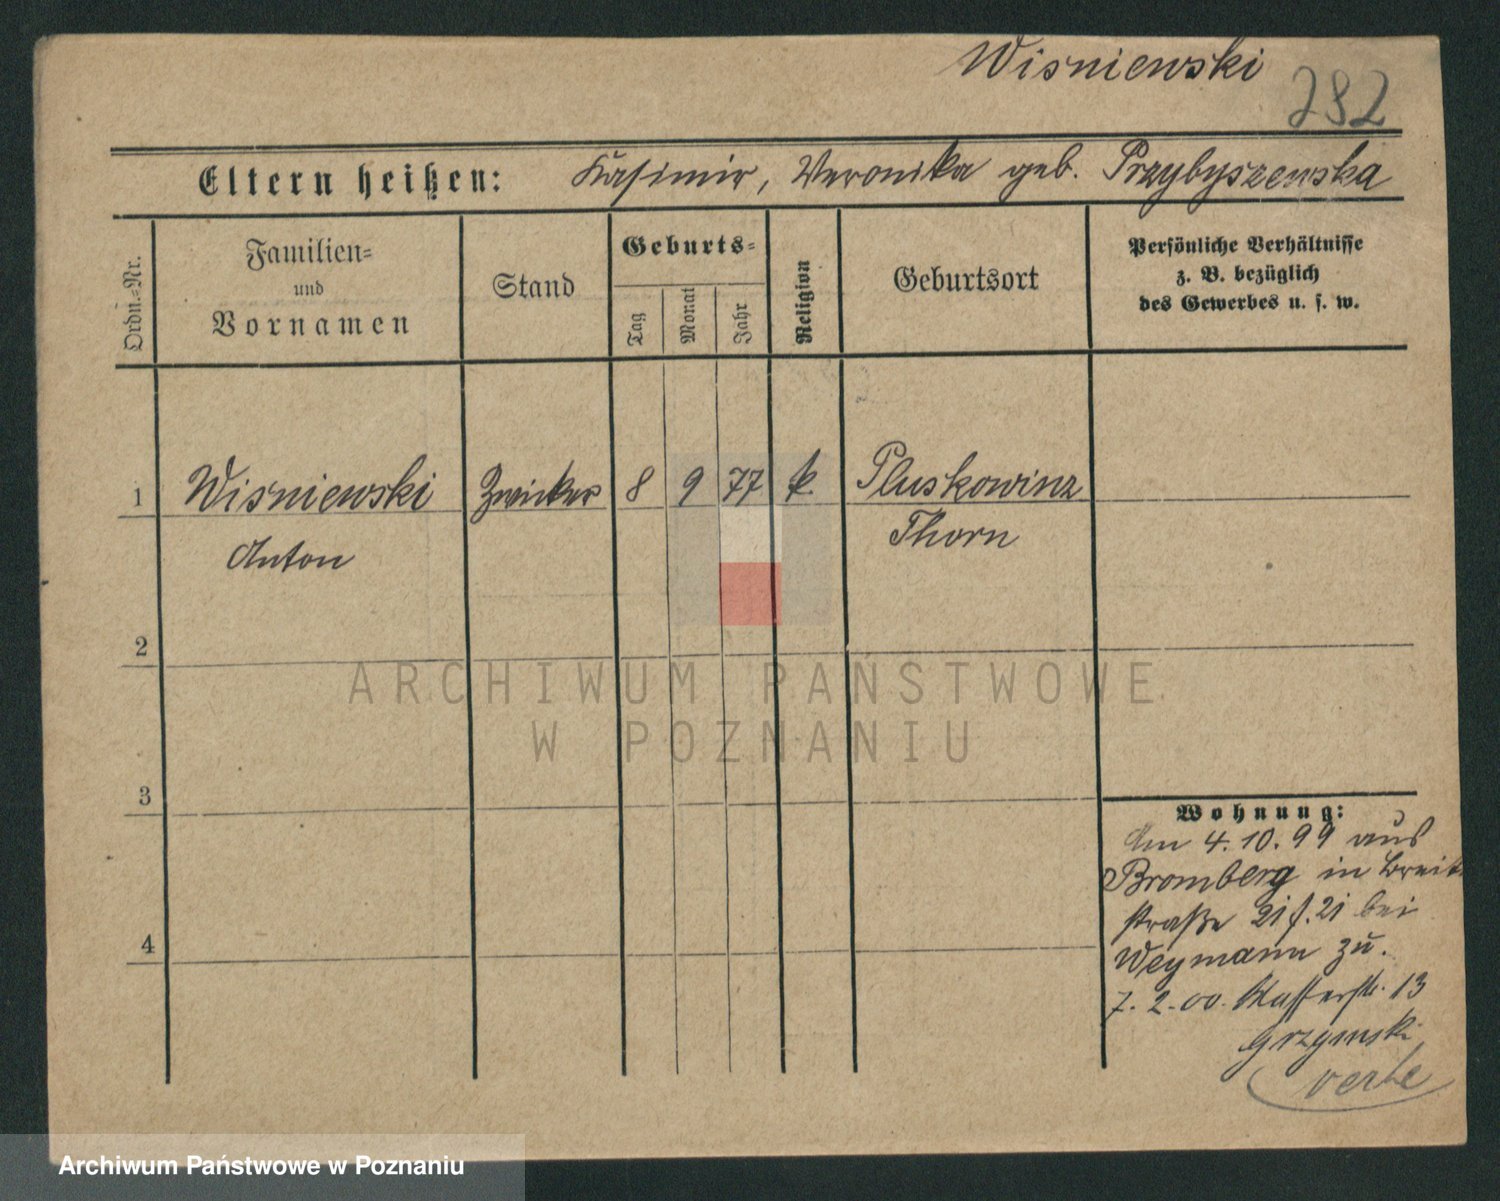 Wisniewski
282
Eltern heißen: Kasimir, Veronika geb. Przybyszewska
Ordn.-Nr.
Familien-
und
Vornamen
Stand
Geburts-
Tag
Monat
Jahr
Religion
Geburtsort
Persönliche Verhältnisse
z. B. bezüglich
des Gewerbes u. s. w.
1 Wisniewski Zwicker 8 9 77 k. Pluskowinz
Anton Thorn
2
ARCHIWUM PAŃSTWOWE
W POZNANIU
3
Wohnung:
Am 4.10.99 aus
Bromberg in Breite
straße 21 f. 21 bei
Weymann zu.
7.2.00. 13
Grzymski
4
Archiwum Państwowe w Poznaniu